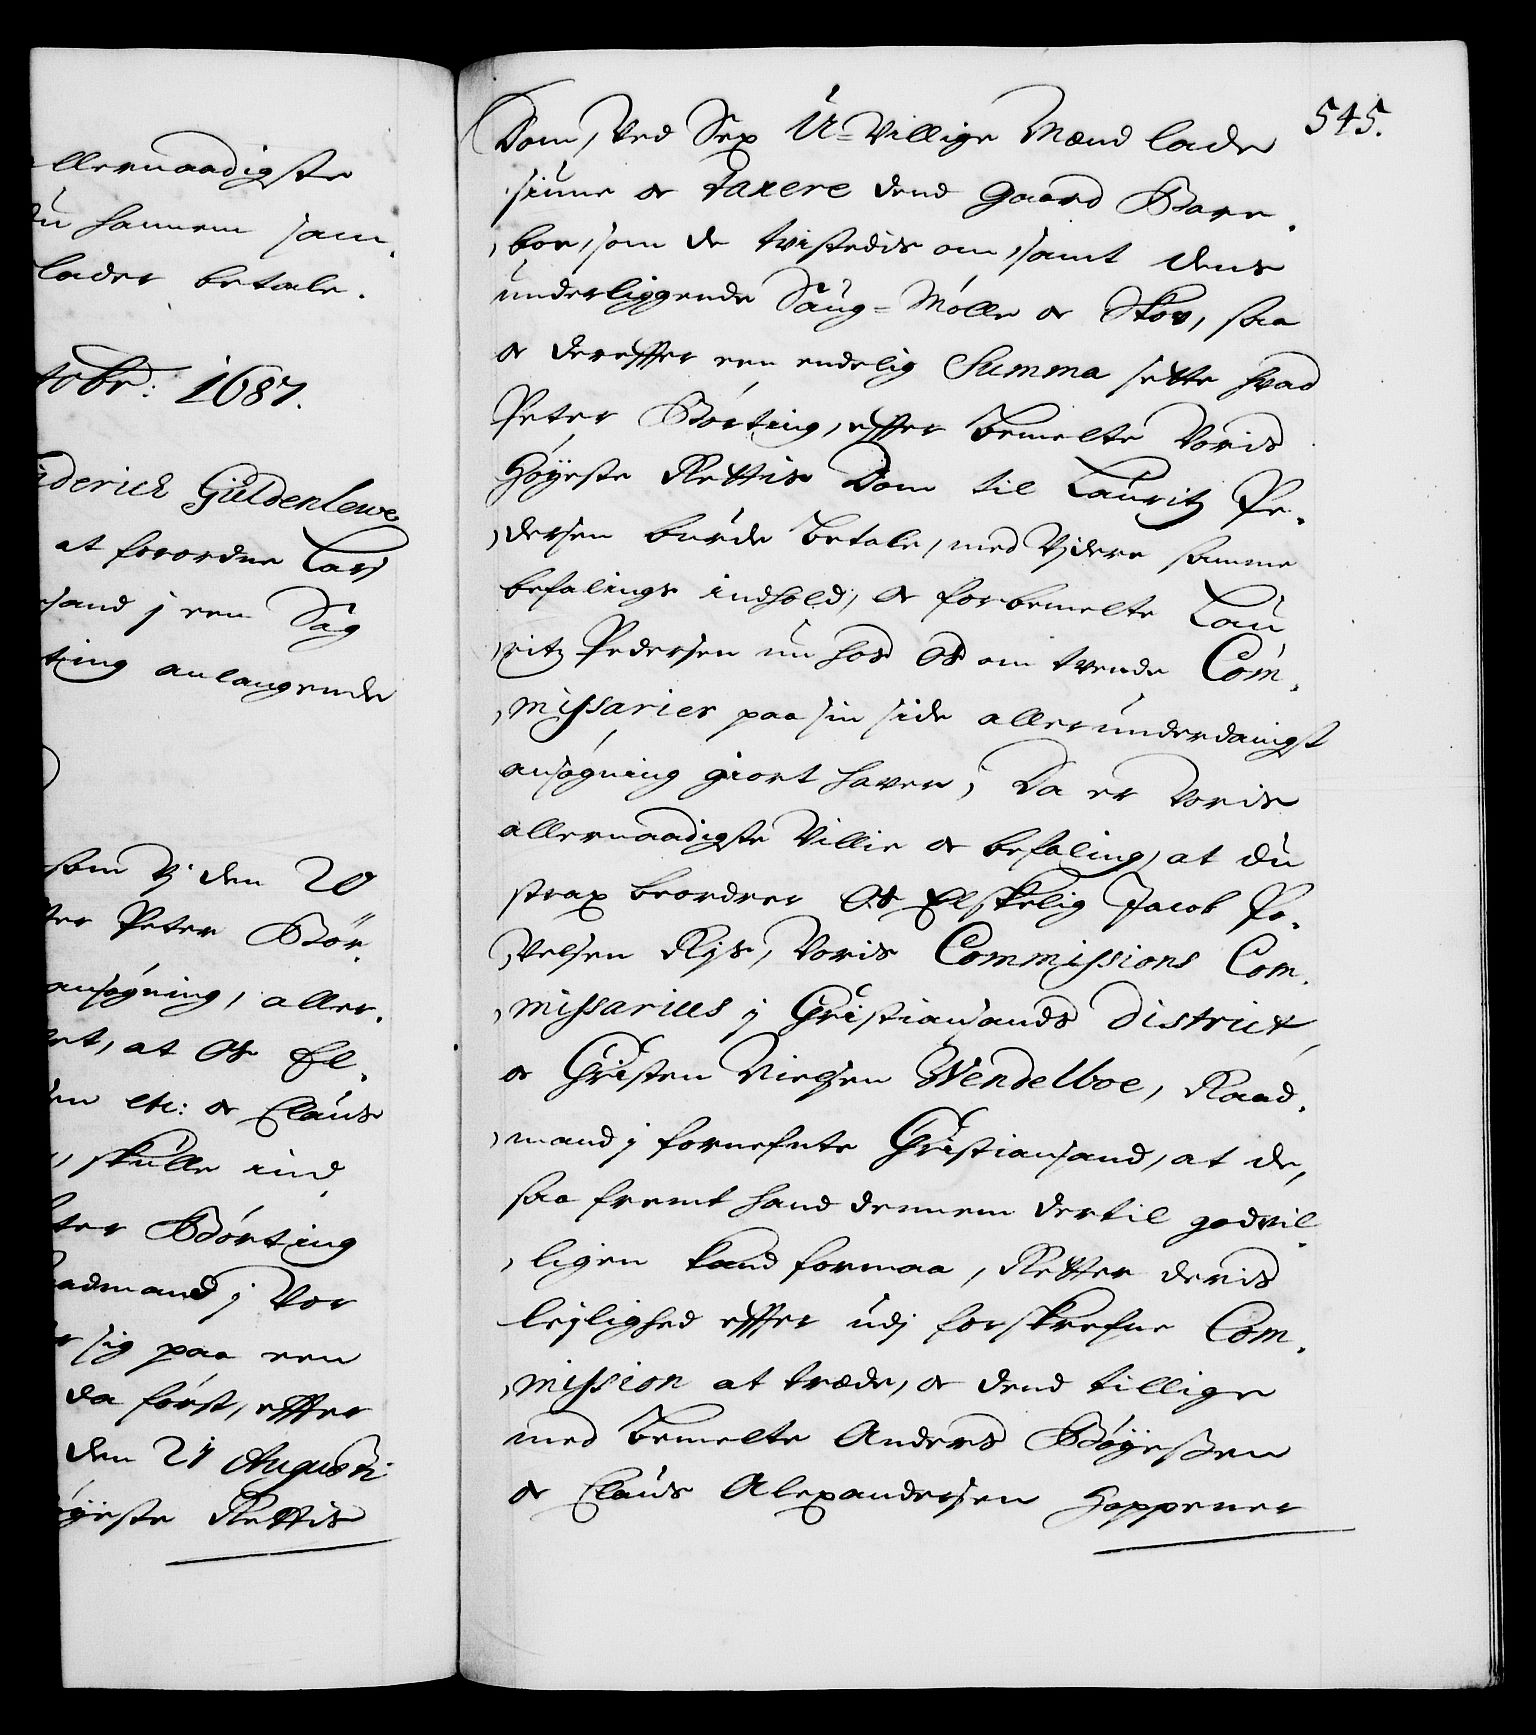 llernaadigste
du hannem sam¬
lader betale.
tobr: 1687.
iderich Güldenlewe
at forordne Lars
sand j een Sag
ting anlangende
som Vj den 20
ter Peter Bør¬
ansøgning, aller¬
at Os El¬
en etc: oc Claus
, skulle ind¬
ter Børting
aadmand j Vor
sig paa een
da først, effter
den 21 Augusti
øyeste Rettis
545.
Dom, Ved Sex U-Villige Mænd lade
siune oc taxere dend Gaard Bare¬
boe, som de tvistedis om, samt dens
underliggende Saug-Mølle oc Skov, saa
oc dereffter een endelig Summa sette hvad
Peter Børting, effter bemelte Voris
Høyeste Rettis Dom til Lauritz Pe¬
dersen burde betale, med Videre samme
befalings indhold, oc forbemelte Lau¬
ritz Pedersen nu hos Os om tvende Com¬
missarier paa sin side allerunderdanigst
ansøgning giort haver, Da er Voris
allernaadigste Villie oc befaling, at du
strax beordrer Os Elskelig Jacob Po¬
velsen Rÿs, Voris Commissions Com¬
missarius j Christiansands District,
oc Christen Nielsen Wendelboe, Raad¬
mand j fornefnte Christiansand, at de,
saa fremt hand dennem dertil godvil¬
ligen kand formaa, Retter deris
lejlighed effter udj forskrefne Com¬
mission at træde, oc dend tillige
med bemelte Anders Bøyessen
oc Claus Alexandersen Hoppener